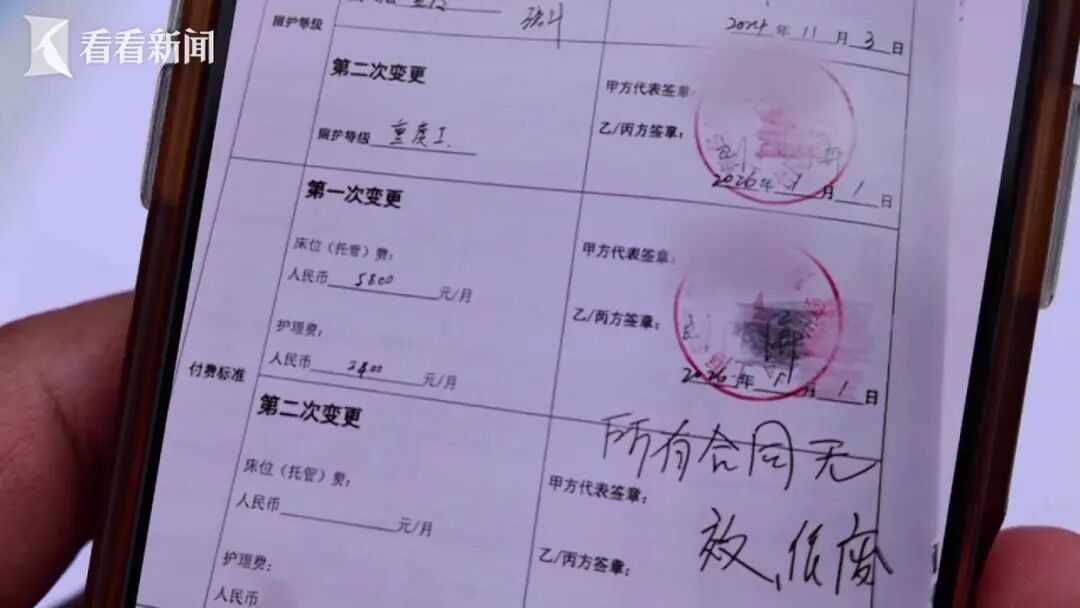 看看新闻
照护等级
2024年11月3日
第二次变更
甲方代表签章:
乙/丙方签章:
照护等级 重度I.
2026年1月1日
第一次变更
床位(托管)费:
甲方代表签章:
人民币 5800 元/月
乙/丙方签章:
护理费:
人民币 2400 元/月
2026年1月1日
付费标准
第二次变更
所有合同无
床位(托管)费:
甲方代表签章:
人民币 元/月
效、作废
乙/丙方签章:
护理费:
人民币